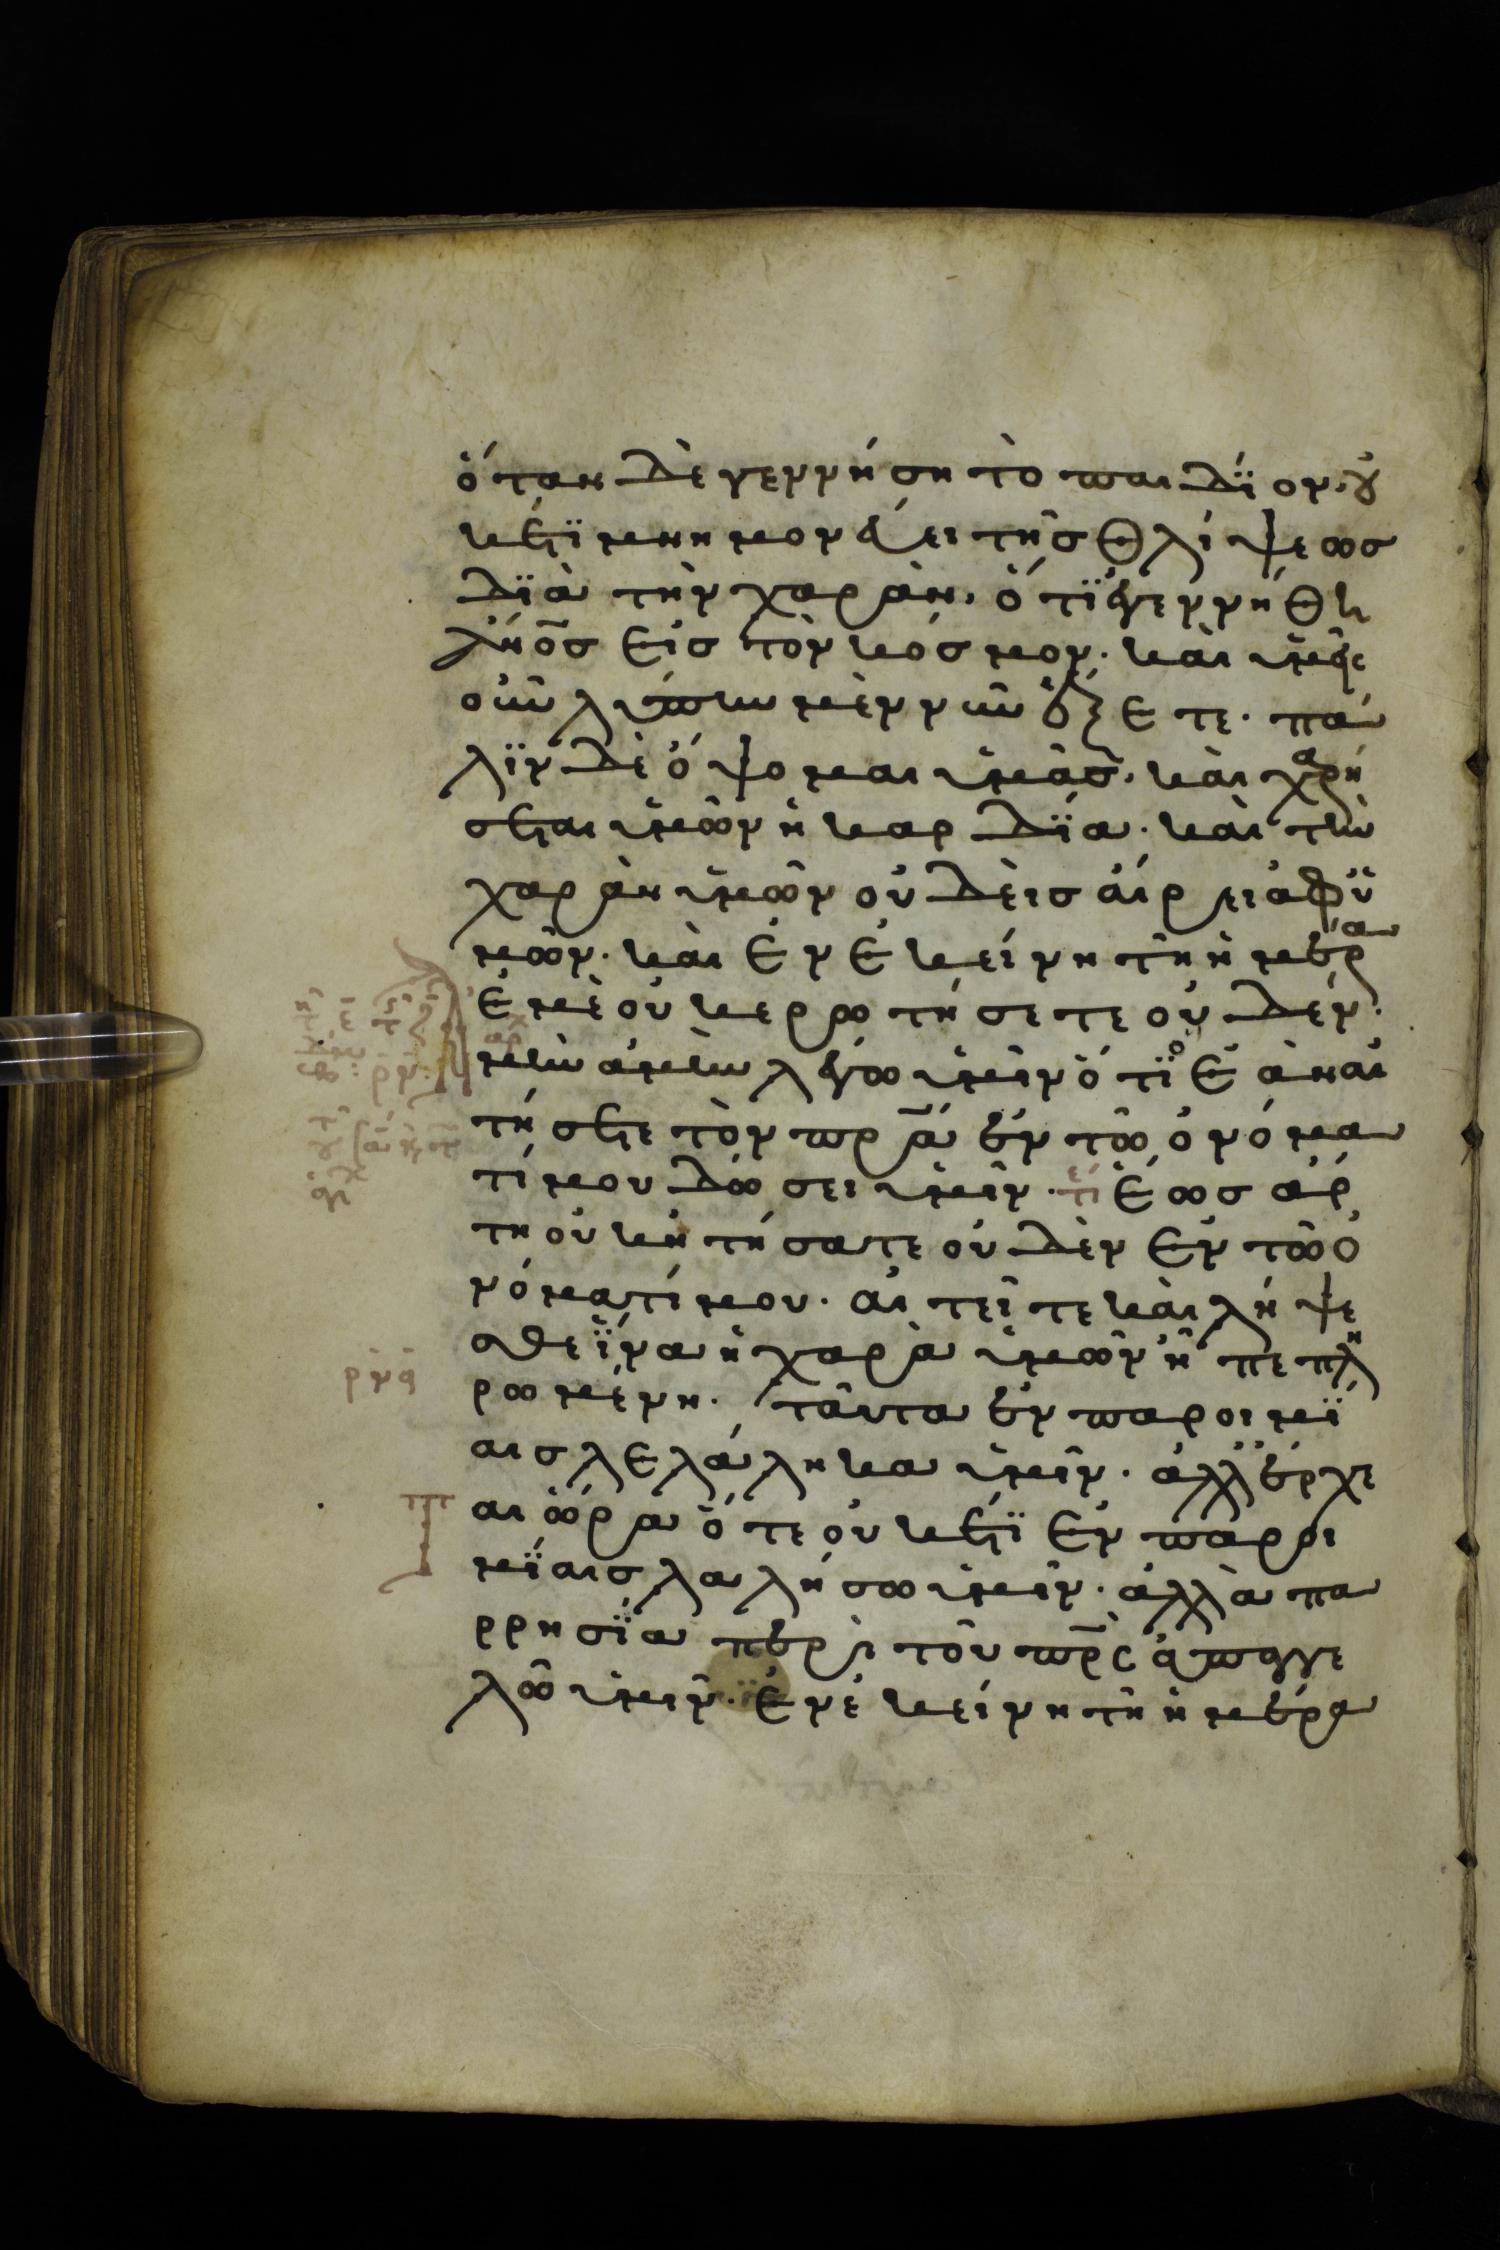 ὅταν δὲ γεννήση τὸ παιδΐον· οὐ
κέτϊ μνημονεύει τῆς θλίψεως
δϊὰ τὴν χαρὰν, ὅτϊ ἐγεννήθη
ἄν̅ο̅ς εἰς τὸν κόσμον· καὶ ὑμεῖς
οὖν λύπην μὲν νῦν ἕξετε· πά
λϊν δὲ ὄψομαι ὑμᾶς, καὶ χαρή
σεται ὑμῶν ἡ καρδΐα· καὶ τὴν
χαρὰν ὑμῶν οὐδεὶς αἴρει ἀφ' ὑ
μῶν· καὶ ἐν ἐκείνη τῆ ἡμέρα
ἐμὲ οὐκ ἐρρωτήσετε οὐδέν·
μὴν ἀμὴν λέγω ὑμῖν ὅτϊ ὅ ἐὰν αἰ
τήσετε τὸν πρ̅α ἐν τῶ ὀνόμα
τί μου δώσει ὑμῖν· ἕως ἄρ
τη οὐκ ἠτήσατε οὐδὲν ἐν τῶ ὀ
νόματί μου· αἰτεῖτε καὶ λήψε
σθε ἵ̈να ἡ χαρὰ ὑμῶν ἦ πεπλη
ρωμένη· ταῦτα ἐν παροιμΐ
αις λελάληκα ὑμῖν· ἀλλ' ἔρχετ
αι ὥρα ὅτε οὐκέτϊ ἐν παροι
μΐαις λαλήσω ὑμῖν· ἀλλὰ πα
ρρησΐα περὶ τοῦ πρ̅ς ἀπαγγε
λῶ ὑμῖν· ἐν ἐκείνη τῆ ἡμέρα